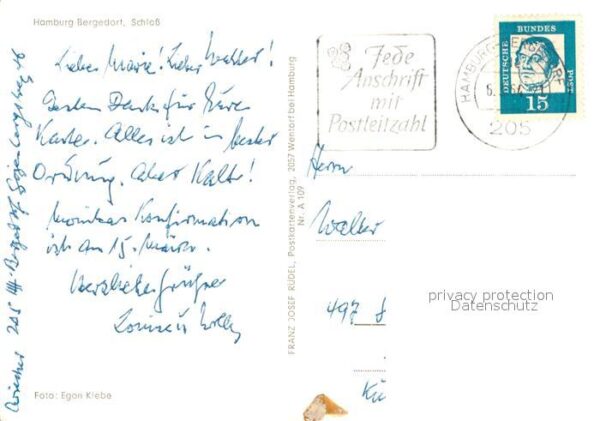 Hamburg-Bergedorf, Schloß
Liebe Marie! Lieber Walter!
Besten Dank für Eure
Karte. Alles ist in bester
Ordnung. Aber Kalt!
Monikas Konfirmation
ist am 15. März.
Herzliche Grüße
Foto: Egon Klebe
205 HH-Bergedorf
FRANZ JOSEF RÜDEL, Postkartenverlag, 2057 Wentorf bei Hamburg
Nr. A 109
Jede
Anschrift
mit
Postleitzahl
HAMBURG
205
DEUTSCHE BUNDESPOST
15
Herrn
Walter
497
privacy protection
Datenschutz